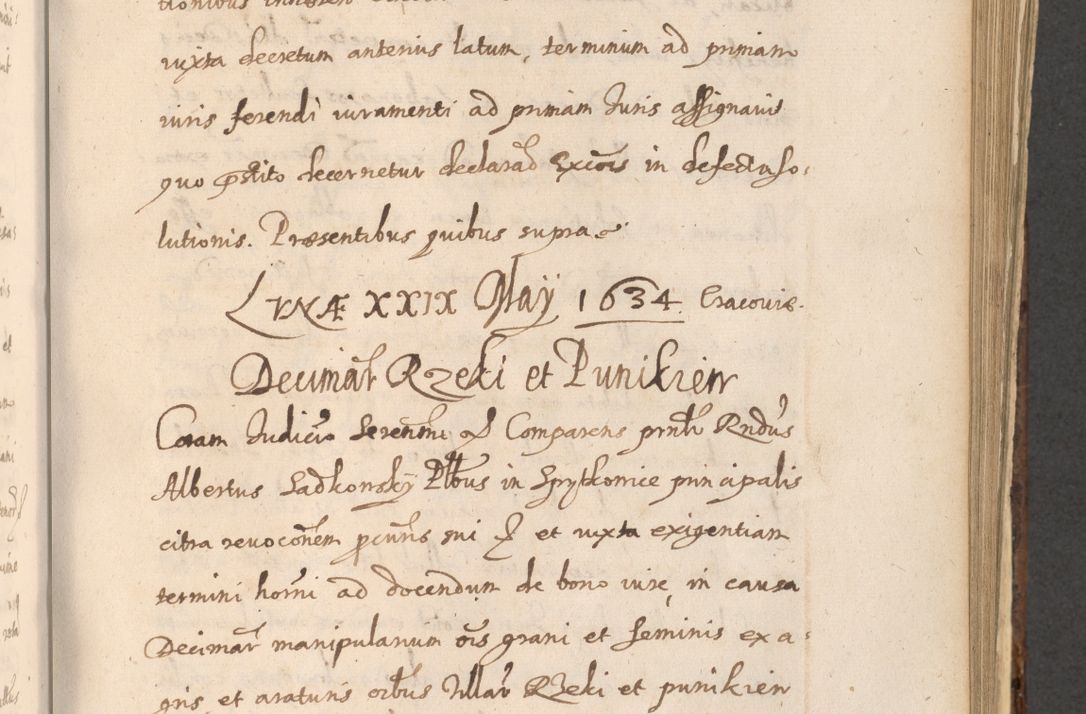 iuxta decretum anterius latum, terminum ad primam
iuris ferendi iuramenti ad primam Iuris assignavit
quo pstito decernetur declarad Excois in defectu so-
lutionis. Præsentibus quibus supra
LVNÆ XXIX Maÿ 1634. Cracoviæ.
Decimar Rzeki et Punikiew
Coram Iudicio Serenmi Comparens prnlr Rndus
Albertus Sadkonsky Plbus in Sprytkonice principalis
citra revoconem pcuris sui et iuxta exigentiam
termini horni ad docendum de bono iure, in causa
Decimar manipularium ois grani et seminis ex a-
gris et araturis oibus Villar Rzeki et punikiew